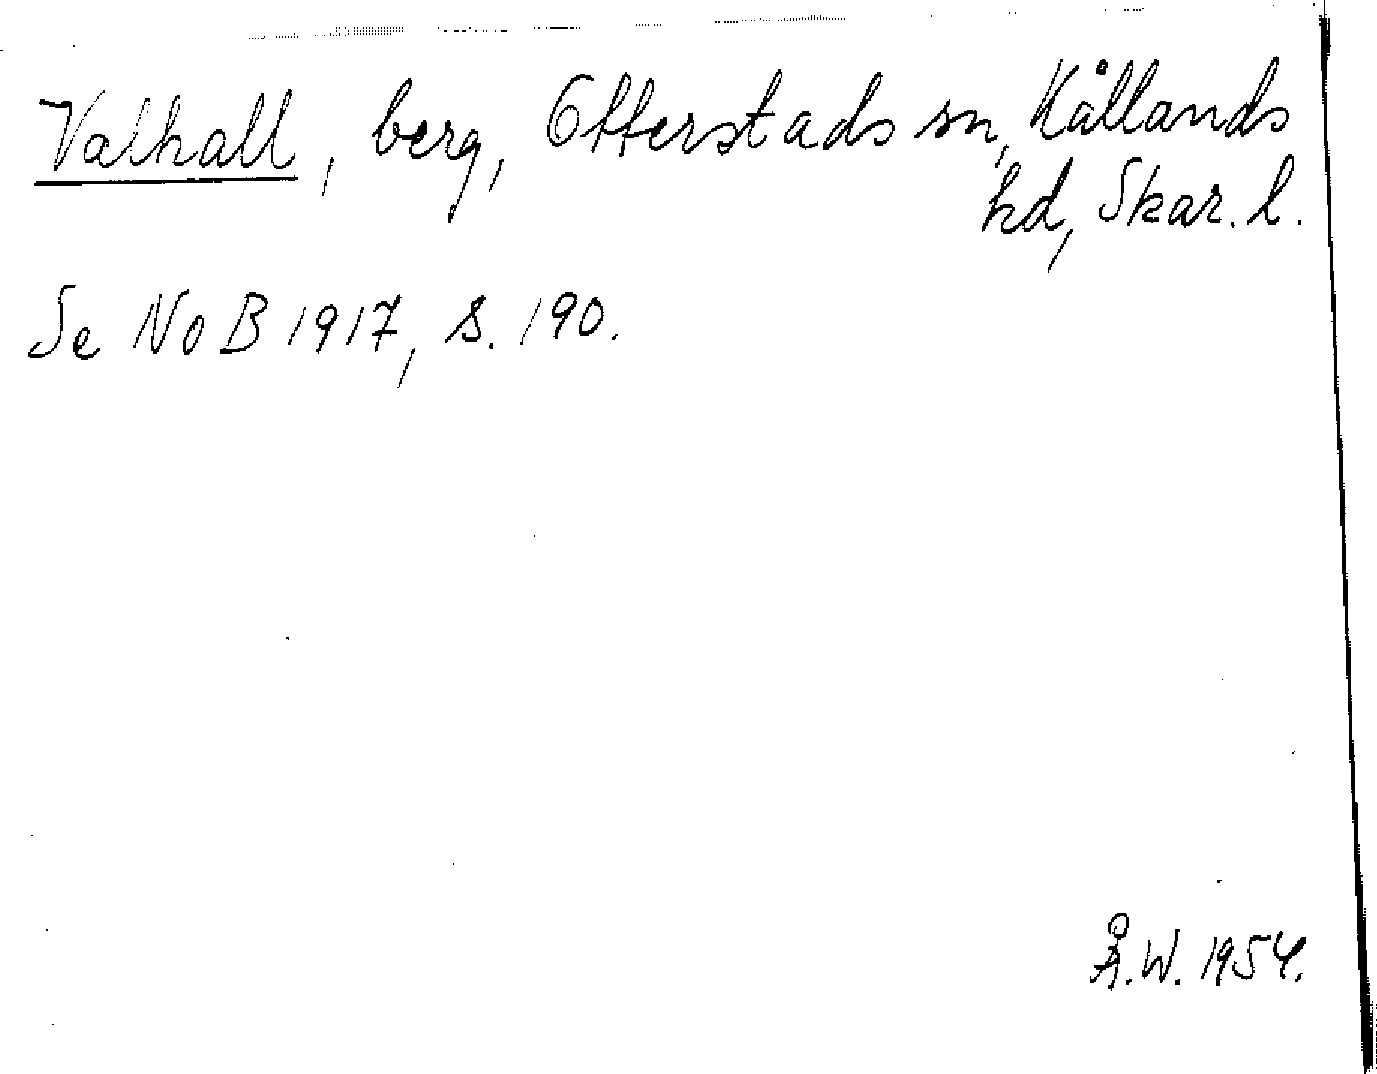 Valhall, berg, Otterstads sn, Kållands
hd, Skar. l.
Se NoB 1917, s. 190.
Å.W. 1954.